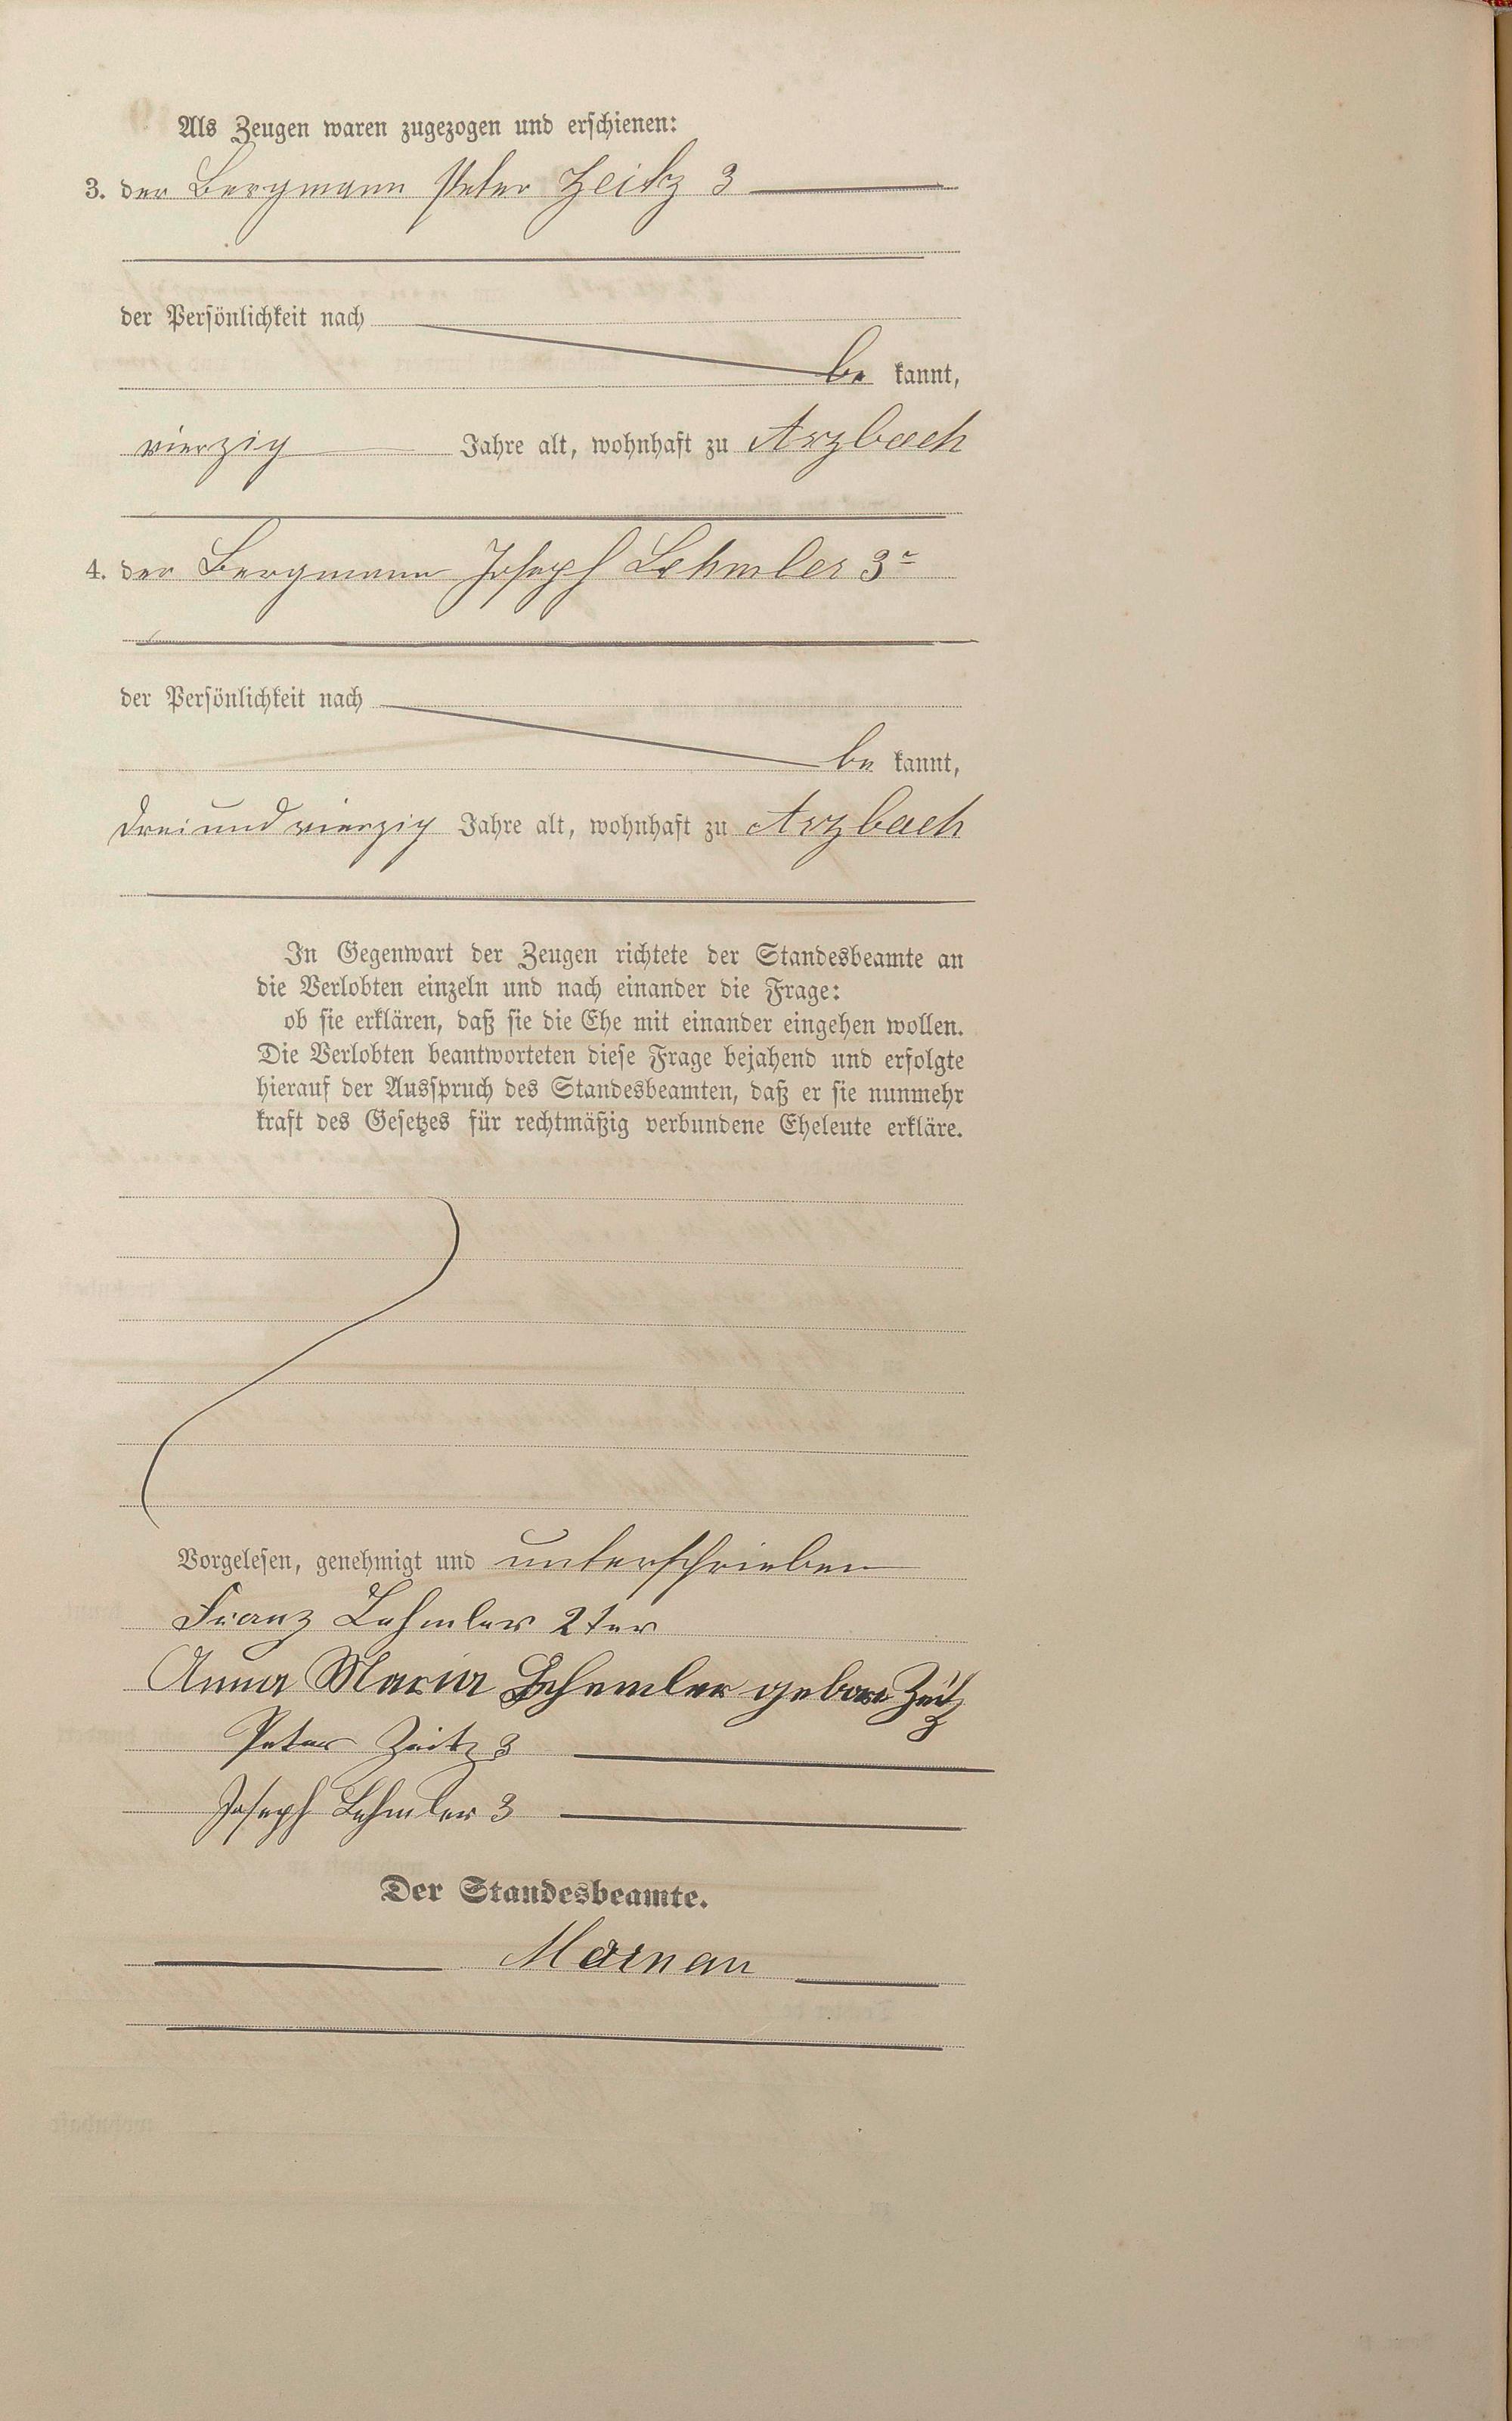 Als Zeugen waren zugezogen und erschienen:
3. der Bergmann Peter Zeitz 3
der Persönlichkeit nach
be kannt,
vierzig Jahre alt, wohnhaft zu Arzbach
4. der Bergmann Joseph Lehmler 3r
der Persönlichkeit nach
be kannt,
dreiundvierzig Jahre alt, wohnhaft zu Arzbach
In Gegenwart der Zeugen richtete der Standesbeamte an
die Verlobten einzeln und nach einander die Frage:
ob sie erklären, daß sie die Ehe mit einander eingehen wollen.
Die Verlobten beantworteten diese Frage bejahend und erfolgte
hierauf der Ausspruch des Standesbeamten, daß er sie nunmehr
kraft des Gesetzes für rechtmäßig verbundene Eheleute erkläre.
Vorgelesen, genehmigt und unterschrieben
Franz Lehmler 2ter
Anna Maria Lehemler gebore Zeitz
Peter Zeitz 3
Joseph Lehmler 3
Der Standesbeamte.
Marnau